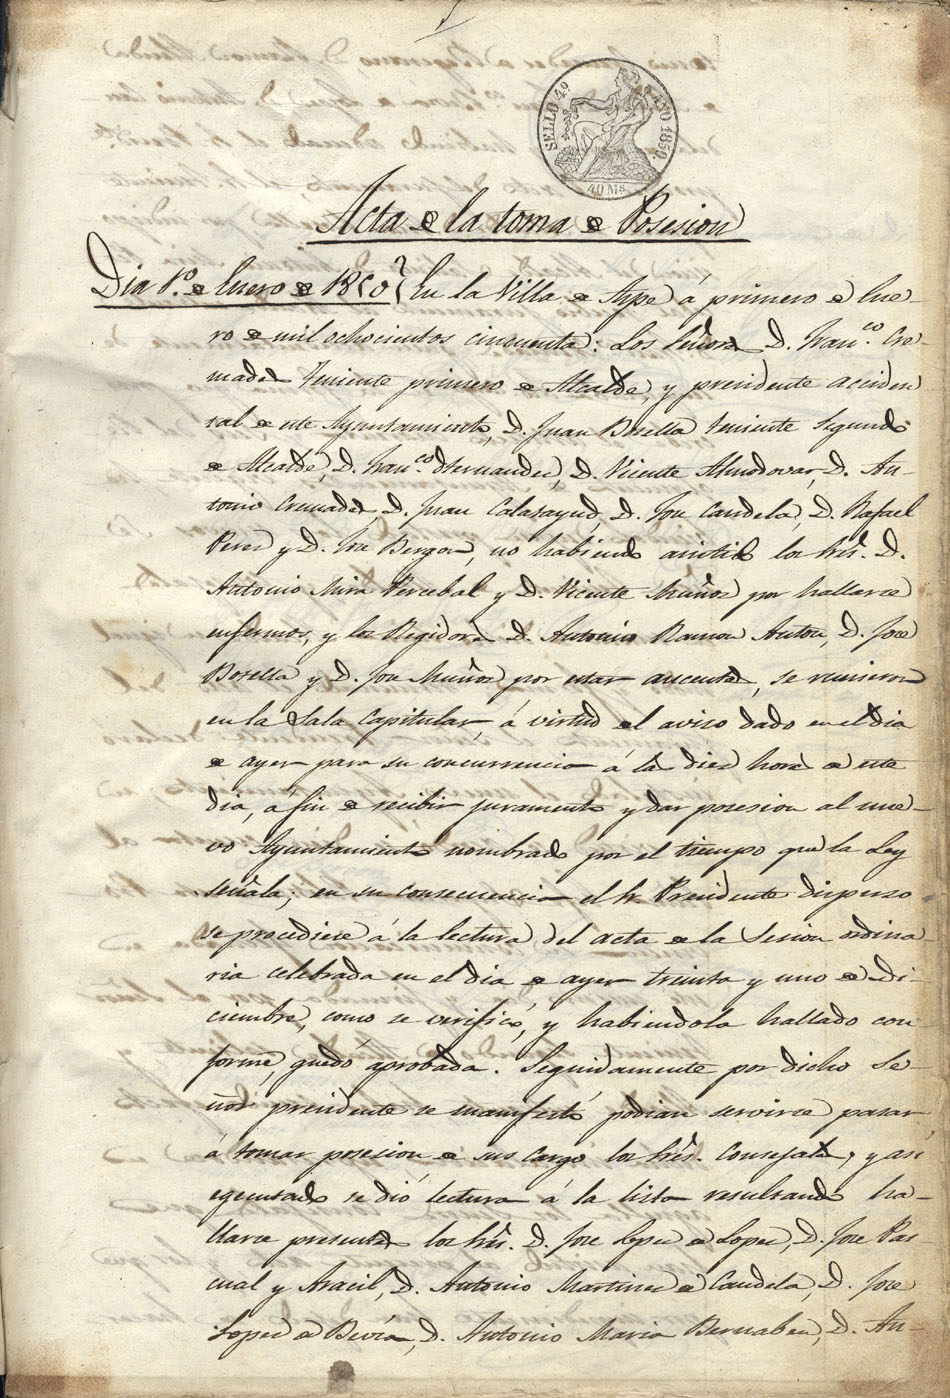 SELLO 4º AÑO 1850.
40 Ms
Acta de la toma de Posesion
Dia 1.º de Enero de 1850 En la Villa de Aspe á primero de Ene-
ro de mil ochocientos cincuenta: Los Señores D. Fran.co Cre-
mades Teniente primero de Alcalde, y presidente acciden
tal de este Ayuntamiento, D. Juan Botella Teniente Segundo
de Alcalde, D. Fran.co Hernandez, D. Vicente Almodovar, D. An-
tonio Cremades, D. Juan Calatayud, D. Jose Candela, D. Rafael
Perez y D. Jose Berzon, no habiendo asistido los Sres. D.
Antonio Mira Percebal y D. Vicente Muñoz por hallarce
enfermos, y los Regidores D. Antonio Ramon Anton, D. Jose
Botella y D. Jose Muñoz por estar aucentes, se reunieron
en la Sala Capitular, á virtud del aviso dado en el dia
de ayer para su concurrencia á las diez horas de este
dia, á fin de recibir juramento y dar posesion al nue-
vo Ayuntamiento nombrado por el tiempo que la Ley
señala; en su consecuencia el Sr. Presidente dispuso
se procediese á la lectura del acta de la Sesion ordina
ria celebrada en el dia de ayer treinta y uno de Di-
ciembre, como se verificó, y habiendola hallado con
forme, quedó aprobada. Seguidamente por dicho Se-
ñor presidente se manifestó podian servirce pasar
á tomar posesion de sus cargos los Sres. Consejales, y asi
egecutado se dió lectura á la lista resultando ha-
llarce presentes los Sres. D. Jose Lopez de Lopez, D. Jose Pas
cual y Aracil, D. Antonio Martinez de Candela, D. Jose
Lopez de Bevia, D. Antonio Maria Bernabeu, D. An-